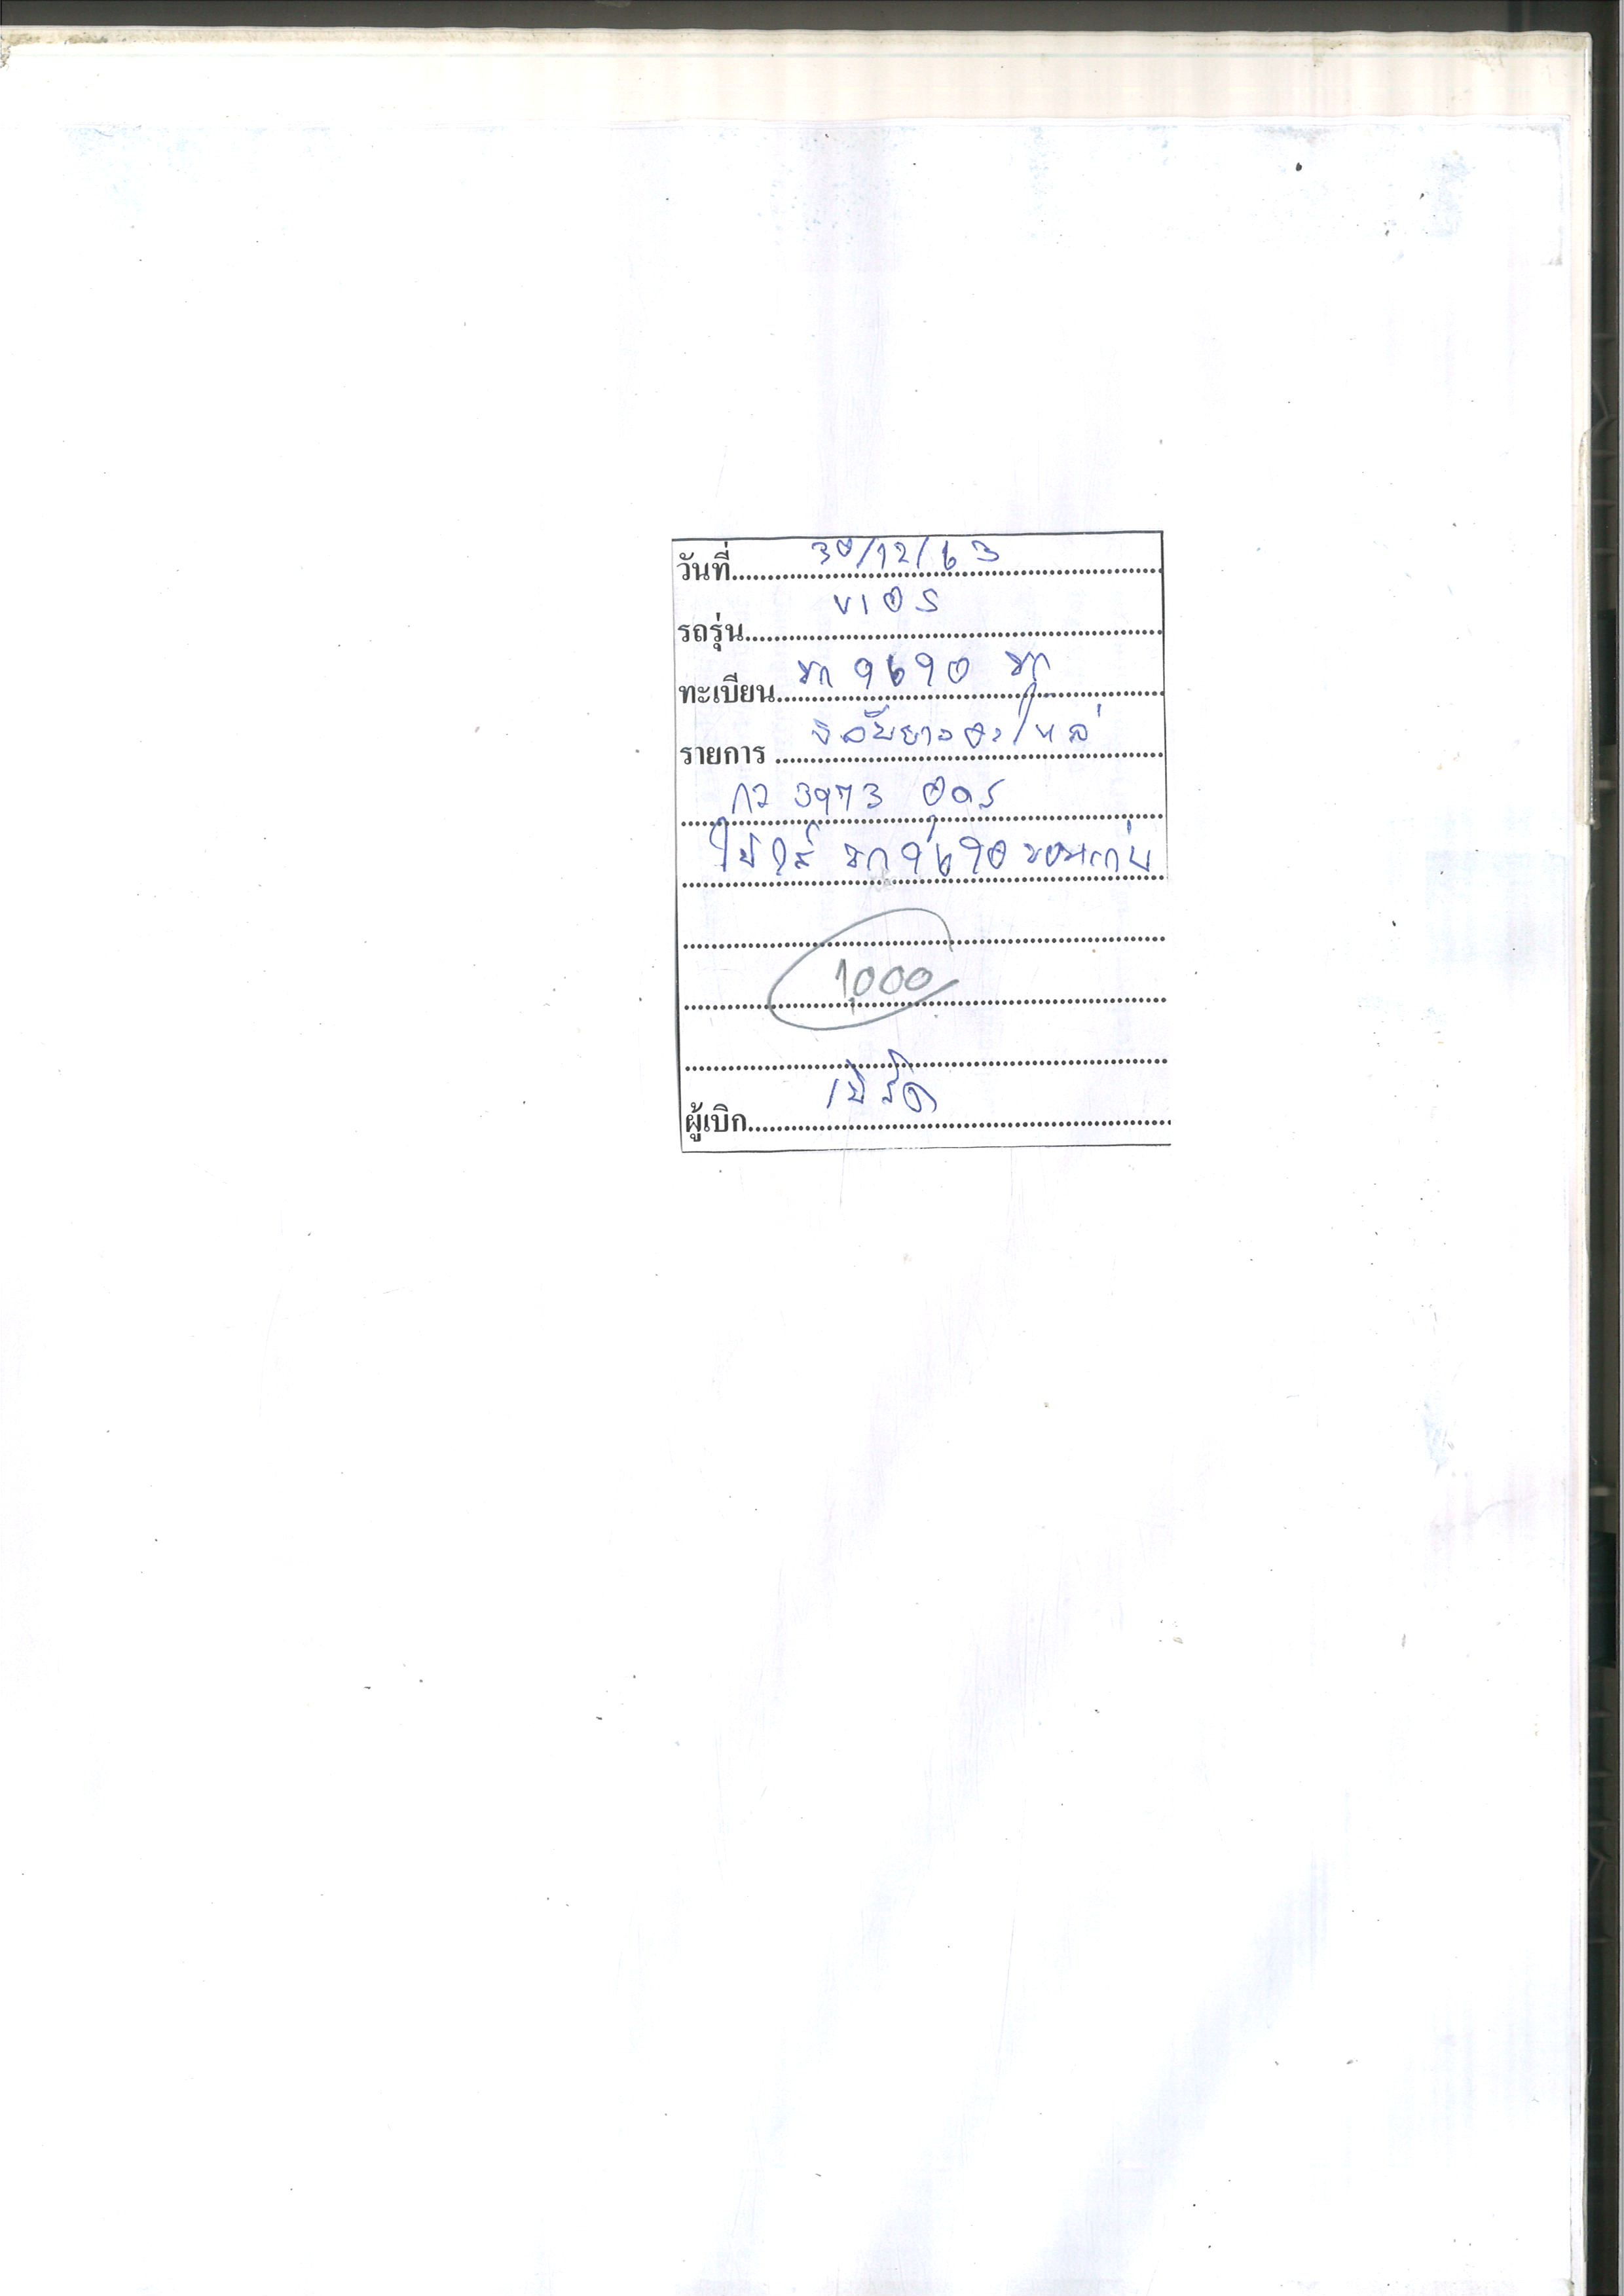 วันที่ 30/12/63
รถรุ่น VIOS
ทะเบียน ขก 9690 ขก
รายการ
กว 3973 อุดร
ไปใส่ ขก 9690 ขอนแก่น
1,000
ผู้เบิก เบิร์ด